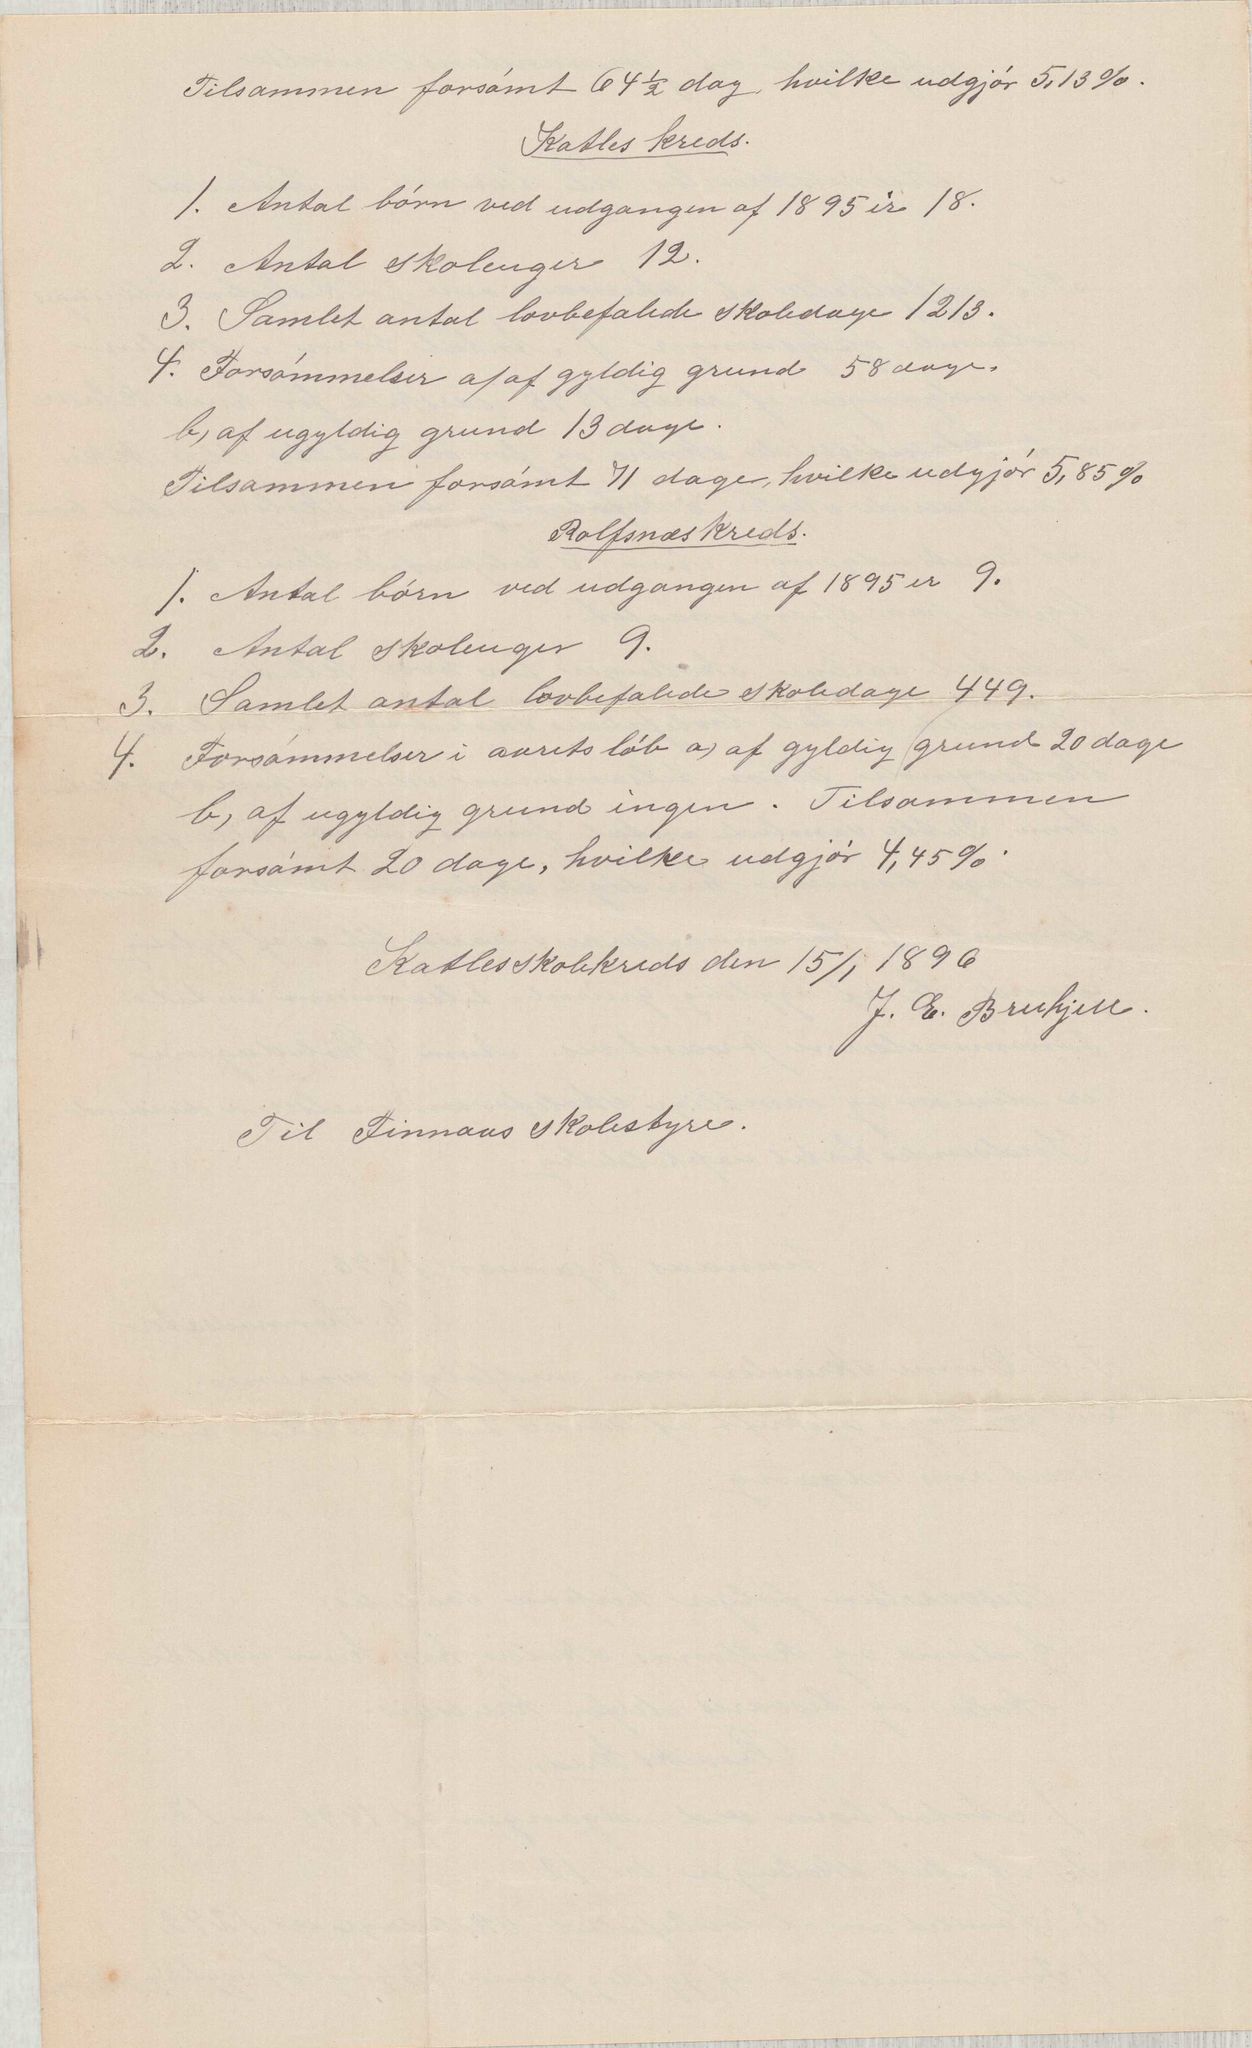 Tilsammen forsómt 64 ½ dag, hvilke udgjór 5,13%.
Katles kreds.
1. Antal bórn ved udgangen af 1895 er 18.
2. Antal skoleuger 12.
3. Samlet antal lovbefalede skoledage 1213.
4. Forsómmelser a, af gyldig grund 58 dage.
b, af ugyldig grund 13 dage.
Tilsammen forsómt 71 dage, hvilke udgjór 5,85%
Rolfsnæs kreds.
1. Antal bórn ved udgangen af 1895 er 9.
2. Antal skoleuger 9.
3. Samlet antal lovbefalede skoledage 449.
4. Forsómmelser i aarets lób a, af gyldig grund 20 dage
b, af ugyldig grund ingen. Tilsammen
forsómt 20 dage, hvilke udgjór 4,45%.
Katles skolekreds den 15/1 1896
J. E. Bruhjell.
Til Finnaas skolestyre.